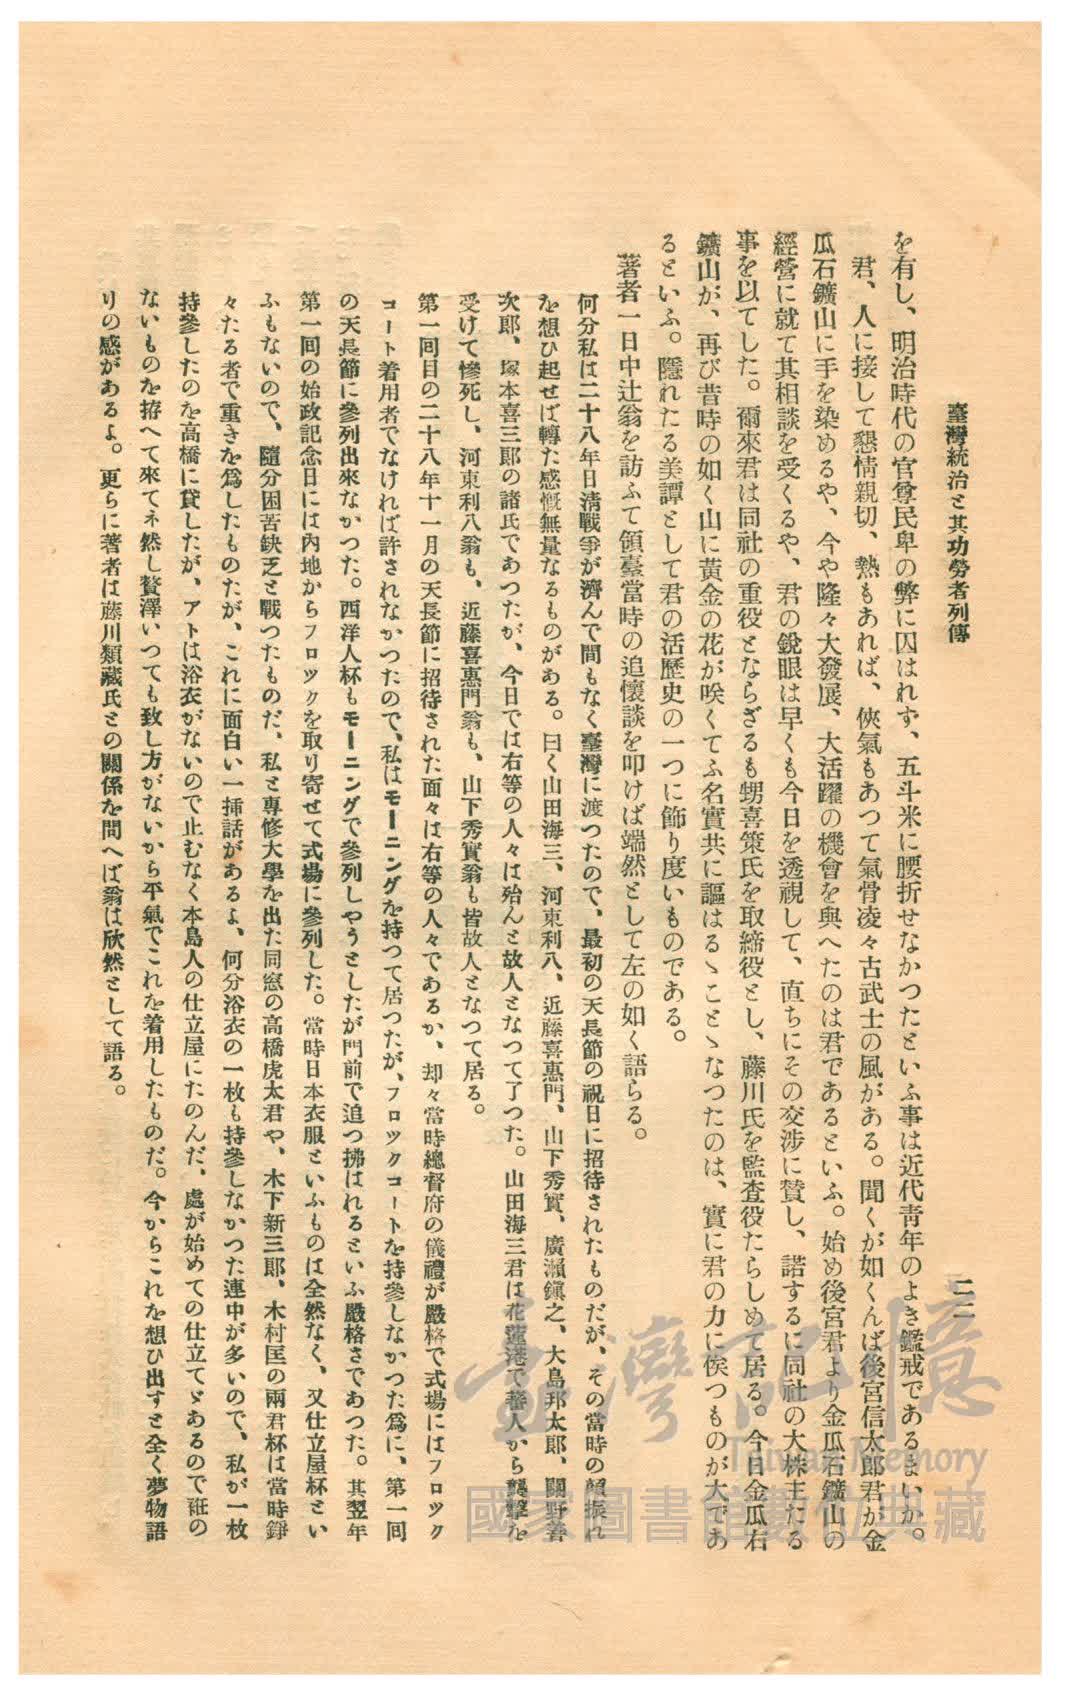 臺灣統治と其功勞者列傳
二二
を有し、明治時代の官尊民卑の弊に囚はれず、五斗米に腰折せなかつたといふ事は近代靑年のよき鑑戒であるまいか。
君、人に接して懇情親切、熱もあれば、俠氣もあつて氣骨凌々古武士の風がある。聞くが如くんば後宮信太郎君が金
瓜石鑛山に手を染めるや、今や隆々大發展、大活躍の機會を與へたのは君であるといふ。始め後宮君より金瓜石鑛山の
經營に就て其相談を受くるや、君の銳眼は早くも今日を透視して、直ちにその交涉に贊し、諾するに同社の大株主たる
事を以てした。爾來君は同社の重役とならざるも甥喜策氏を取締役とし、藤川氏を監査役たらしめて居る。今日金瓜石
鑛山が、再び昔時の如く山に黃金の花が咲くてふ名實共に謳はるゝことゝなつたのは、實に君の力に俟つものが大であ
るといふ。隱れたる美譚として君の活歷史の一つに飾り度いものである。
著者一日中辻翁を訪ふて領臺當時の追懷談を叩けば端然として左の如く語らる。
何分私は二十八年日淸戰爭が濟んで間もなく臺灣に渡つたので、最初の天長節の祝日に招待されたものだが、その當時の顏振れ
を想ひ起せば轉た感慨無量なるものがある。曰く山田海三、河東利八、近藤喜惠門、山下秀實、廣瀨鎭之、大島邦太郞、關野善
次郞、塚本喜三郞の諸氏であつたが、今日では右等の人々は殆んと故人となつて了つた。山田海三君は花蓮港で蕃人から襲擊を
受けて慘死し、河東利八翁も、近藤喜惠門翁も、山下秀實翁も皆故人となつて居る。
第一回目の二十八年十一月の天長節に招待された面々は右等の人々であるか、却々當時總督府の儀禮が嚴格で式場にはフロック
コート着用者でなければ許されなかつたので、私はモーニングを持つて居つたが、フロックコートを持參しなかつた爲に、第一回
の天長節に參列出來なかつた。西洋人杯もモーニングで參列しやうとしたが門前で追つ拂はれるといふ嚴格さであつた。其翌年
第一回の始政記念日には內地からフロックを取り寄せて式場に參列した。當時日本衣服といふものは全然なく、又仕立屋杯とい
ふもないので、隨分困苦缺乏と戰つたものだ、私と專修大學を出た同窓の高橋虎太君や、木下新三郞、木村匡の兩君杯は當時錚
々たる者で重きを爲したものたが、これに面白い一揷話があるよ、何分浴衣の一枚も持參しなかつた連中が多いので、私が一枚
持參したのを高橋に貸したが、アトは浴衣がないので止むなく本島人の仕立屋にたのんだ、處が始めての仕立てゞあるので袵の
ないものを拵へて來てネ然し贅澤いつても致し方がないから平氣でこれを着用したものだ。今からこれを想ひ出すと全く夢物語
りの感があるよ。更らに著者は藤川類藏氏との關係を問へば翁は欣然として語る。
臺灣記憶
Taiwan Memory
國家圖書館數位典藏